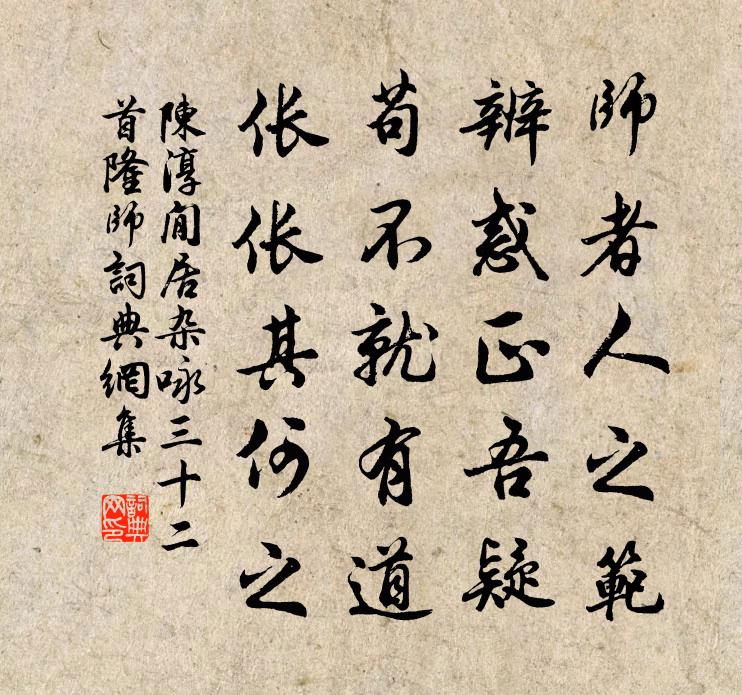 師者人之範
辨惑正吾疑
苟不就有道
伥伥其何之
陳淳閒居杂咏三十二
首隆師詞典網集
詞典网印